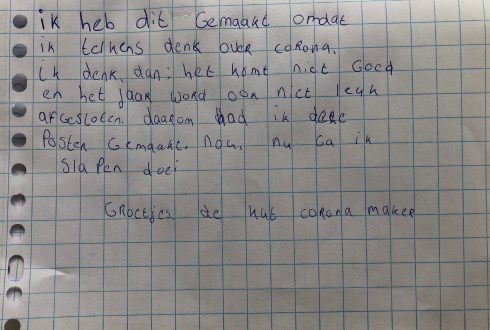 ik heb dit Gemaakt omdat
ik telkens denk over corona.
ik denk dan: het komt niet Goed
en het jaar word ook niet leuk
afgesloten. daarom had ik deze
Poster Gemaakt. nou, nu Ga ik
slapen doei
Groetjes de kut corona maker